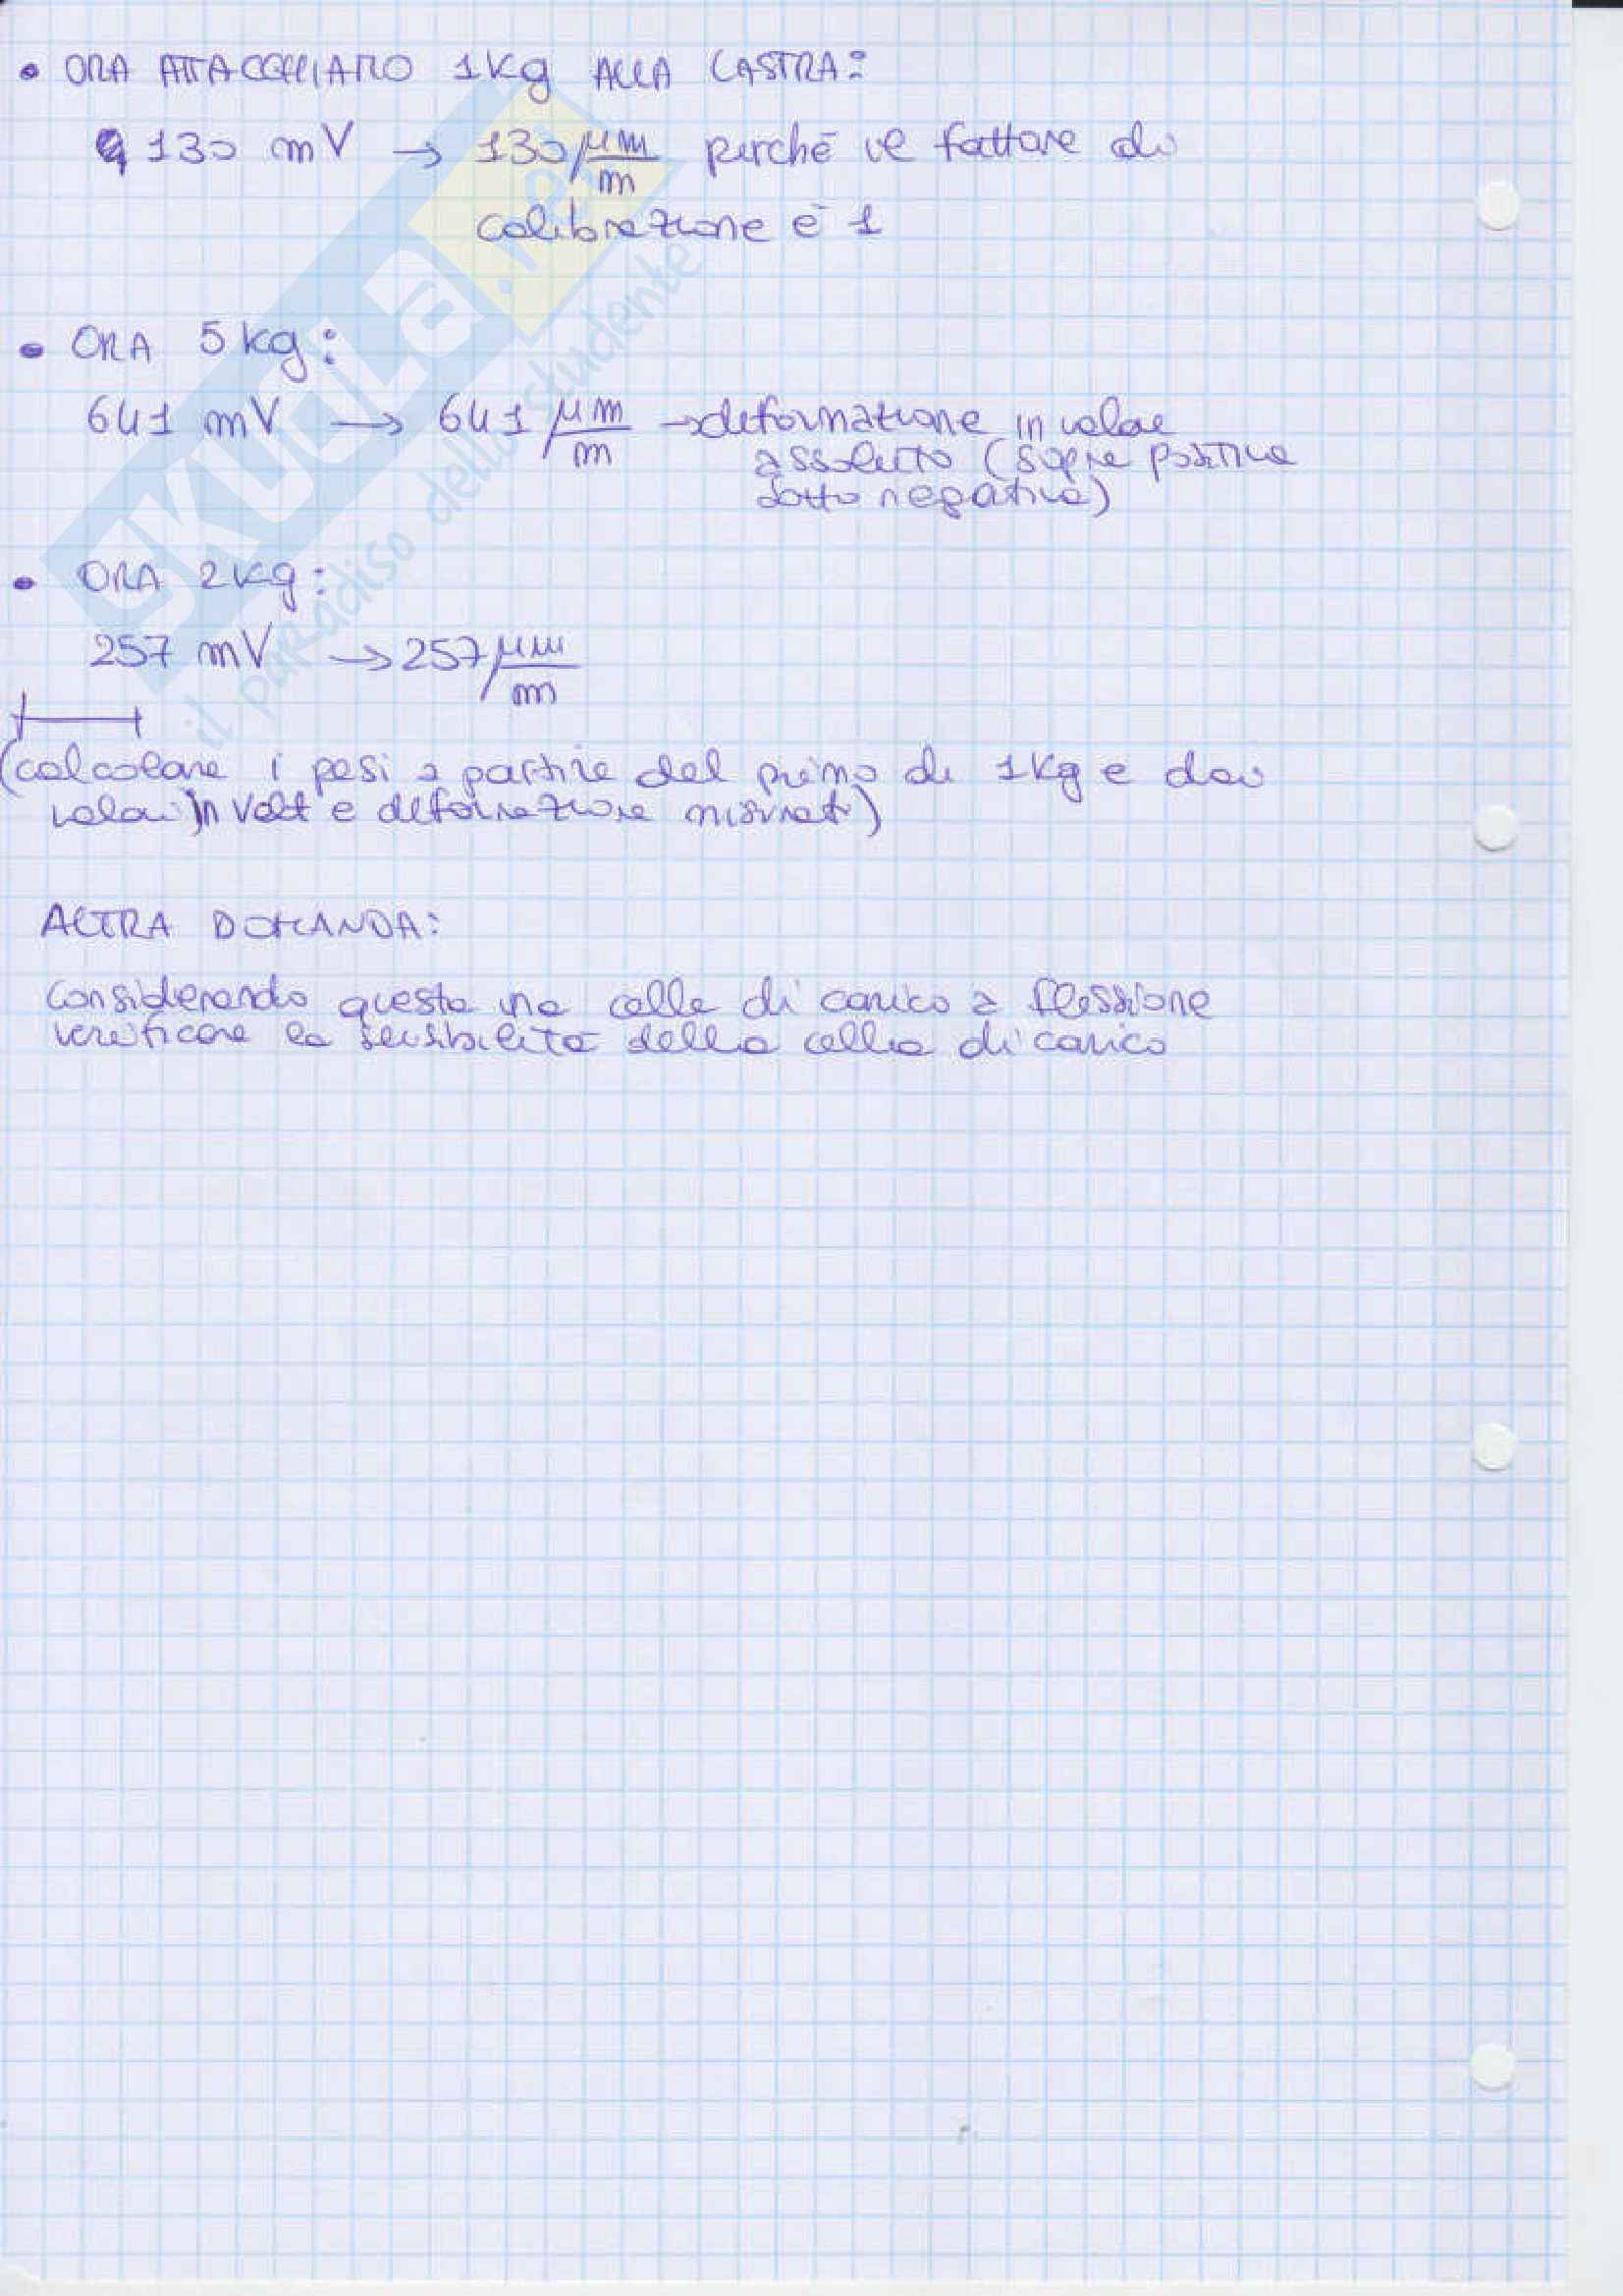 • ORA ATTACCHIAMO 1kg ALLA LASTRA:
130 mV → 130 μm/m perché il fattore di
calibrazione è 1
• ORA 5kg:
641 mV → 641 μm/m → deformazione in valore
assoluto (sopra positiva
sotto negativa)
• ORA 2kg:
257 mV → 257 μm/m
(calcolare i pesi a partire dal primo di 1kg e dai
valori in Volt e deformazione misurati)
ALTRA DOMANDA:
Considerando questa una cella di carico a flessione
verificare la sensibilità della cella di carico
SKUOLA.net
il paradiso dello studente